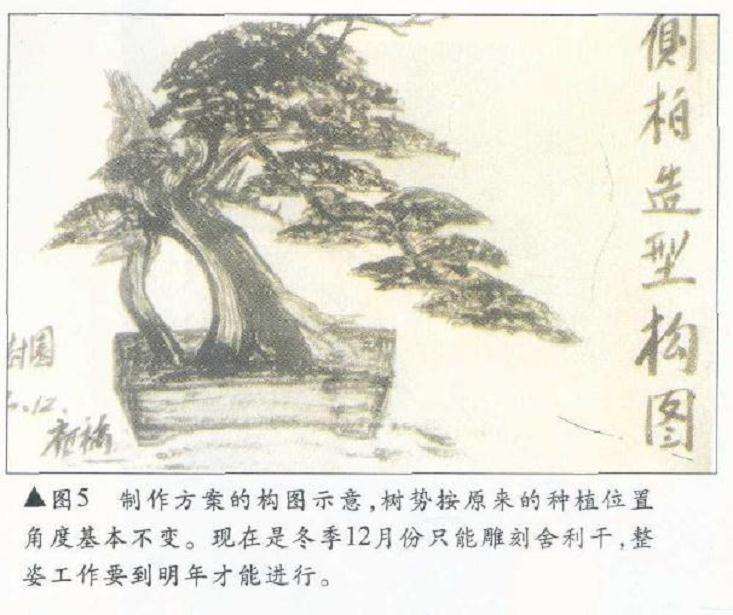 側柏造型构图
村园
.12.
▲图5 制作方案的构图示意,树势按原来的种植位置
角度基本不变。现在是冬季12月份只能雕刻舍利干,整
姿工作要到明年才能进行。